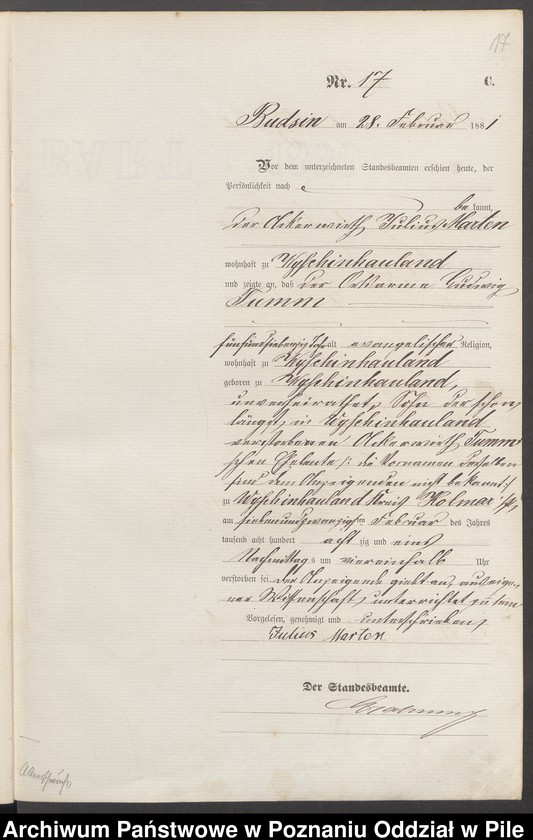 17
Nr. 17 C.
Budsin am 28. Februar 1881
Vor dem unterzeichneten Standesbeamten erschien heute, der
Persönlichkeit nach
be kannt,
der Ackerwirth Julius Marten
wohnhaft zu Wyschinhauland
und zeigte an, daß der Ortsarme Ludwig
Tumm
fünfundsiebenzig Jahr alt evangelischer Religion,
wohnhaft zu Wyschinhauland
geboren zu Wyschinhauland,
unverheirathet, Sohn der schon
längst in Wyschinhauland
verstorbenen Ackerwirth Tumm
schen Eheleute /: die Vornamen derselben
sind dem Anzeigenden nicht bekannt :/
zu Wyschinhauland Kreis Kolmar i/P,
am siebenundzwanzigsten Februar des Jahres
tausend acht hundert achtzig und eins
Nachmittags um viereinhalb Uhr
verstorben sei. Der Anzeigende giebt an, aus eige-
ner Wissenschaft unterrichtet zu sein
Vorgelesen, genehmigt und unterschrieben
Julius Marten
Der Standesbeamte.
Archiwum Państwowe w Poznaniu Oddział w Pile